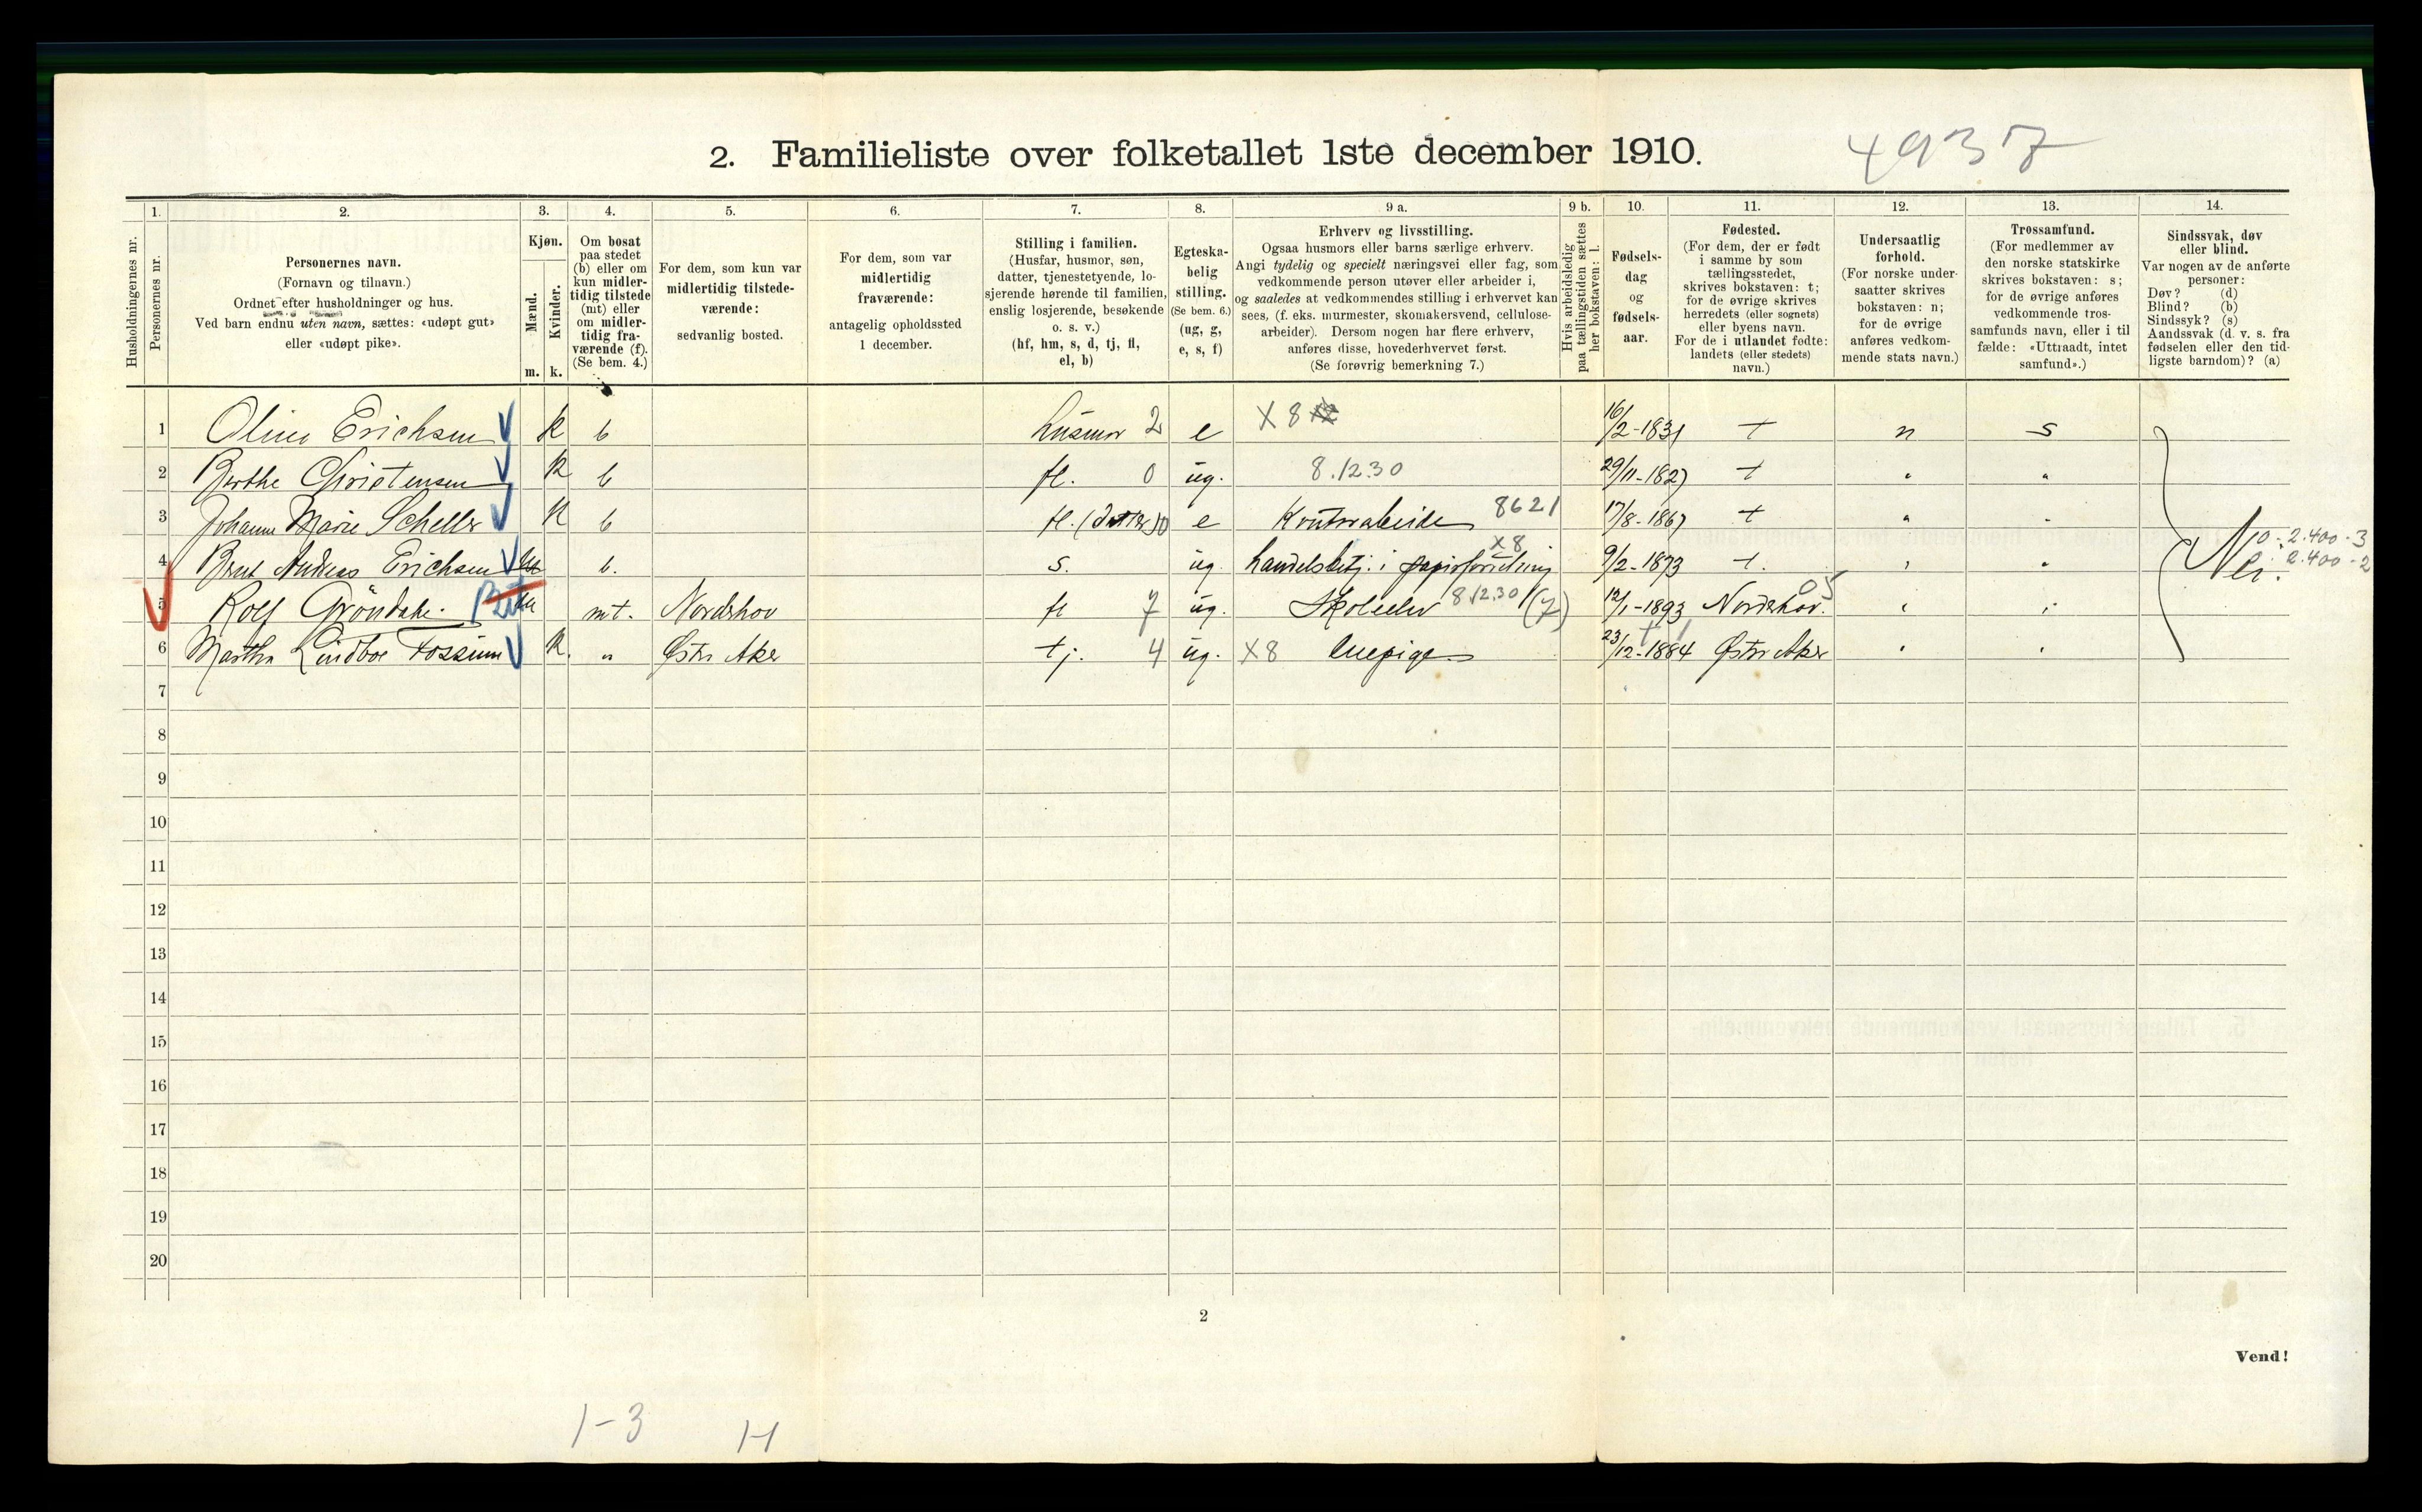 2. Familieliste over folketallet 1ste december 1910.
4937
Husholdningernes nr.
1.
Personernes nr.
2.
Personernes navn.
(Fornavn og tilnavn.)
Ordnet efter husholdninger og hus.
Ved barn endnu uten navn, sættes: «udøpt gut»
eller «udøpt pike».
3.
Kjøn.
Mænd.
Kvinder.
m. k.
4.
Om bosat
paa stedet
(b) eller om
kun midler-
tidig tilstede
(mt) eller
om midler-
tidig fra-
værende (f).
(Se bem. 4.)
5.
For dem, som kun var
midlertidig tilstede-
værende:
sedvanlig bosted.
6.
For dem, som var
midlertidig
fraværende:
antagelig opholdssted
1 december.
7.
Stilling i familien.
(Husfar, husmor, søn,
datter, tjenestetyende, lo-
sjerende hørende til familien,
enslig losjerende, besøkende
o. s. v.)
(hf, hm, s, d, tj, fl,
el, b)
8.
Egteska-
belig
stilling.
(Se bem. 6.)
(ug, g,
e, s, f)
9 a.
Erhverv og livsstilling.
Ogsaa husmors eller barns særlige erhverv.
Angi tydelig og specielt næringsvei eller fag, som
vedkommende person utøver eller arbeider i,
og saaledes at vedkommendes stilling i erhvervet kan
sees, (f. eks. murmester, skomakersvend, cellulose-
arbeider). Dersom nogen har flere erhverv,
anføres disse, hovederhvervet først.
(Se forøvrig bemerkning 7.)
9 b.
Hvis arbeidsledig
paa tællingstiden sættes
her bokstaven: l.
10.
Fødsels-
dag
og
fødsels-
aar.
11.
Fødested.
(For dem, der er født
i samme by som
tællingsstedet,
skrives bokstaven: t;
for de øvrige skrives
herredets (eller sognets)
eller byens navn.
For de i utlandet fødte:
landets (eller stedets)
navn.)
12.
Undersaatlig
forhold.
(For norske under-
saatter skrives
bokstaven: n;
for de øvrige
anføres vedkom-
mende stats navn.)
13.
Trossamfund.
(For medlemmer av
den norske statskirke
skrives bokstaven: s;
for de øvrige anføres
vedkommende tros-
samfunds navn, eller i til
fælde: «Uttraadt, intet
samfund».)
14.
Sindssvak, døv
eller blind.
Var nogen av de anførte
personer:
Døv? (d)
Blind? (b)
Sindssyk? (s)
Aandssvak (d. v. s. fra
fødselen eller den tid-
ligste barndom)? (a)
1 Oline Erichsen k b husmor 2 e X 8 16/2-1831 t n s
2 Berthe Christensen k b fl. 0 ug. 8.1230 29/11-1827 t " "
3 Johanne Marie Scheller k b fl. (datter) 0 e Kontorarbeide 8621 17/8-1867 t " "
4 Bernt Andreas Erichsen m b. s. ug. handelsbetj. i papirforretning X8 9/2-1873 t. " " Nei. 0-2.400-3
2.400-2
5 Rolf Gröndahl. m mt. Nordshov fl 7 ug. Skoleelev 8 1230 (7) 12/1-1893 Nordshov. 05 " "
6 Martha Lindboe Fossum k. " Østre Aker tj. 4 ug. X8 Enepige 23/12-1884 Østre Aker " "
7
8
9
10
11
12
13
14
15
16
17
18
19
20
2
Vend!
1-3 H